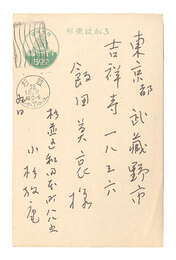 郵便はがき
東京都 武蔵野市
吉祥寺一八三六
飯田美哀様
杉並区和田本町八五五
小杉放庵